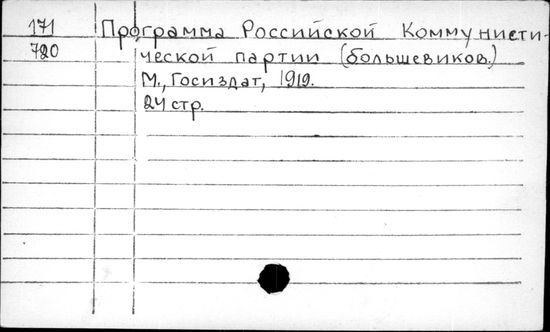 171 Программа Российской Коммунисти-
720 ческой партии (большевиков.)
М., Госиздат, 1919.
24 стр.